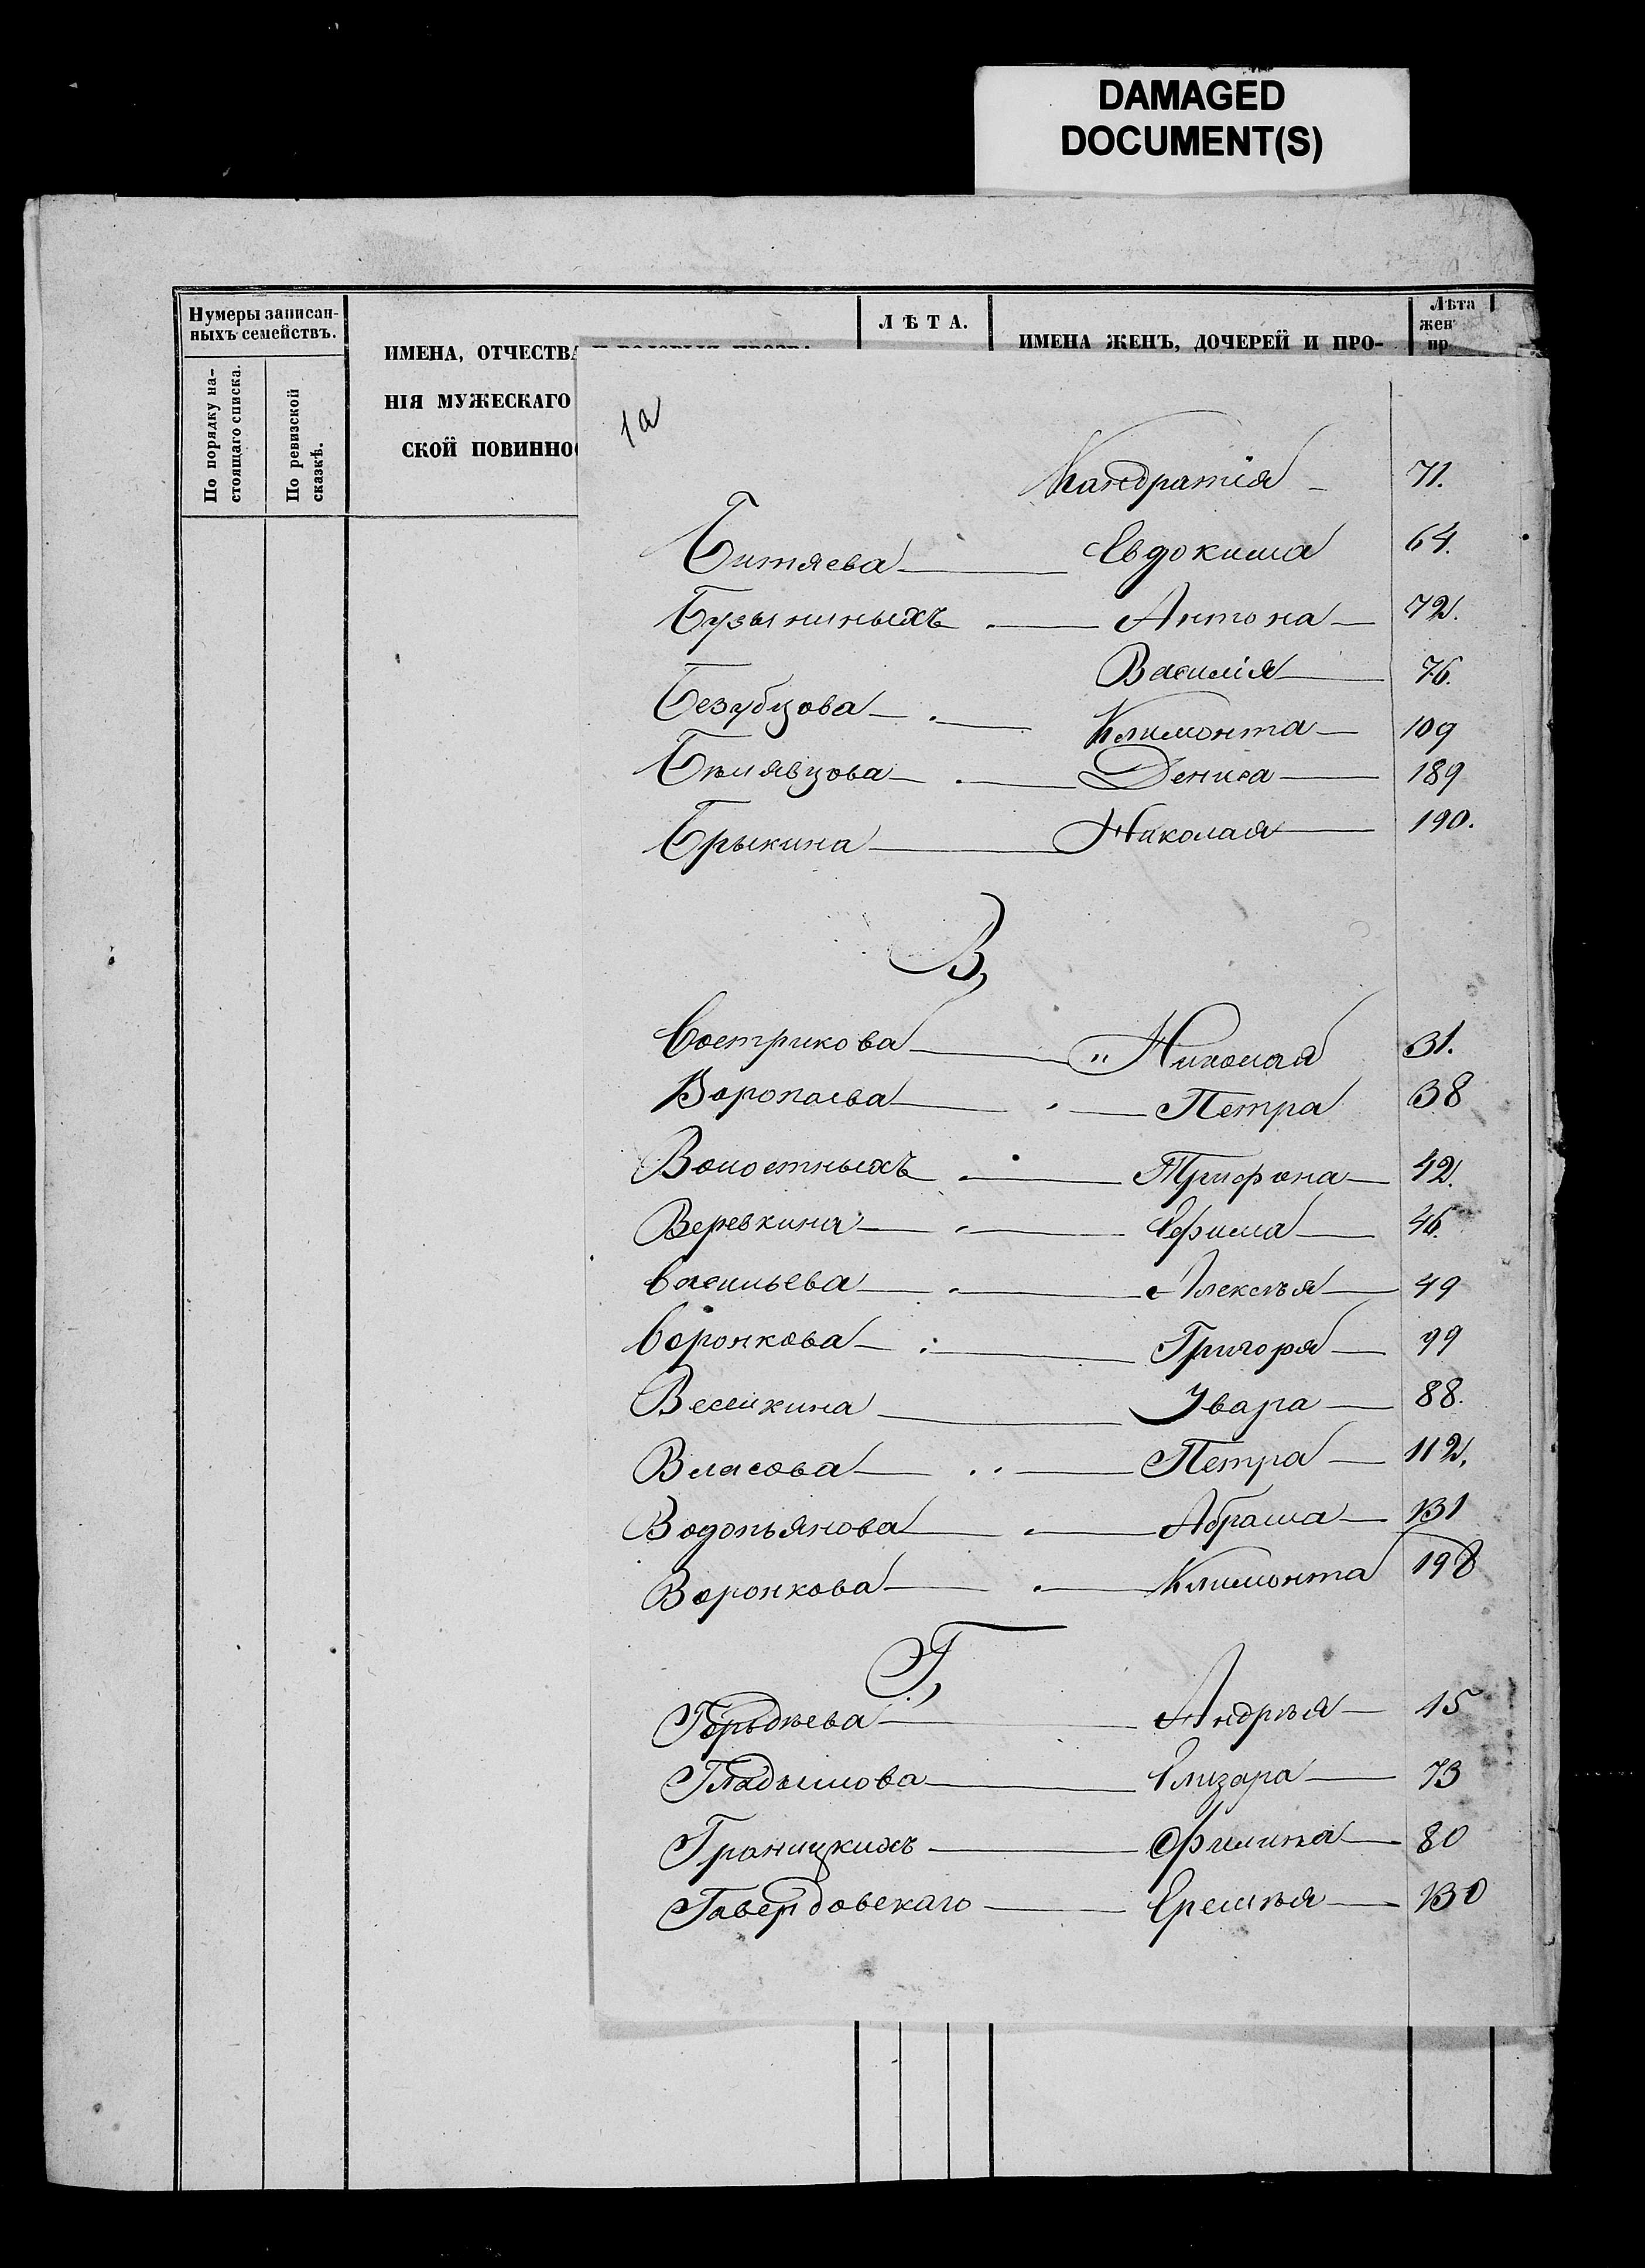 DAMAGED
DOCUMENT(S)
Нумеры записан-
ныхъ семействъ.
По порядку на-
стоящаго списка.
По ревизской
сказкѣ.
ИМЕНА, ОТЧЕСТВА
НІЯ МУЖЕСКАГО
СКОЙ ПОВИННО
ЛѢТА.
ИМЕНА ЖЕНЪ, ДОЧЕРЕЙ И ПРО-
Лѣта
жен
пр
1а
Кандратія 71.
Битяева Евдокима 64.
Бузыниныхъ Антона 72.
Василія 76.
Беззубцова Климонта 109
Бѣлявцова Дениса 189
Брыкина Николая 190.
В,
Вострикова " Николая 31.
Воропаева Петра 38
Волостныхъ Трифона 42.
Веревкина Ефима 46.
Васильева Алексѣя 49
Воронкова Григоря 99
Веселкина Увара 88.
Власова Петра 112.
Водопьянова Абрама 131
Воронкова Климонта 198
Г,
Гордѣева Андрѣя 15
Гладышова Елизара 73
Границкихъ Филипа 80
Гавердовскаго Еремѣя 130